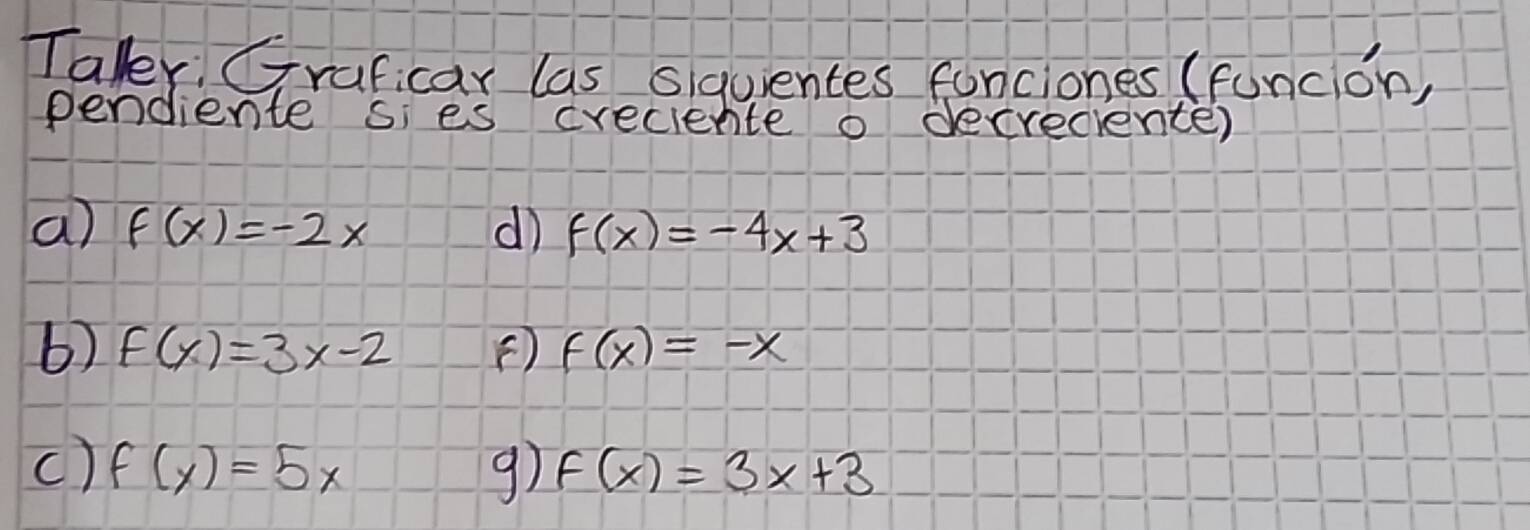 Taller: Graficar las siguientes funciones (función,
pendiente si es creciente o decreciente)
a) f(x)=-2x d) f(x)=-4x+3
b) f(x)=3x-2 f) f(x)= -x
c) f(x)=5x g) f(x)=3x+3